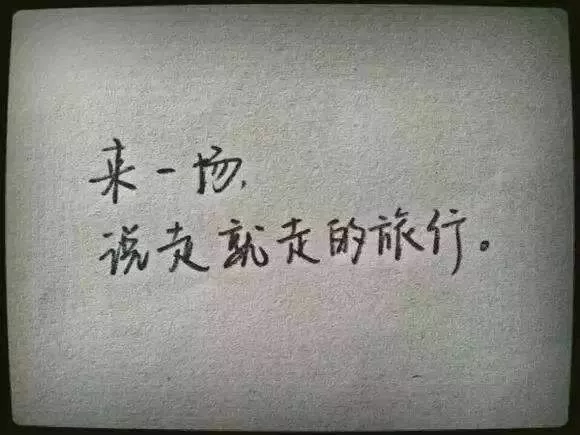 来一场，
说走就走的旅行。